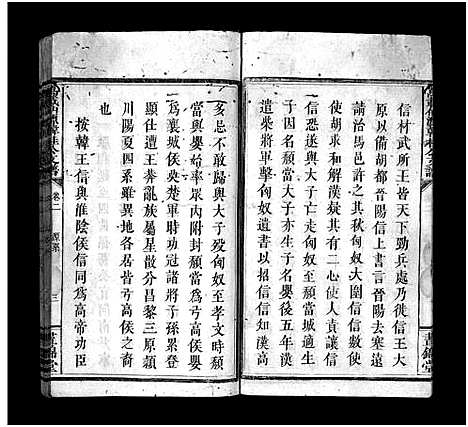 信材武所王皆天下勁兵處乃徙信王大
原以備胡都晉陽信上書言晉陽去塞遠
請治馬邑許之其秋匈奴大圍信信數使
使胡求和解漢疑其有二心使人責讓信
信恐遂與大子亡走匈奴至頹當城適生
子因名頹當大子亦生子名嬰後五年漢
遣柴將軍擊匈奴遺書以招信信漢
多忌不敢歸與大子歿匈奴至孝文時頹
當與嬰率眾內附封頹當為弓高侯嬰
為襄城侯吳楚軍時功冠諸將子孫累登
顯仕遭王莽亂族屬星散分昌黎三原潁
川陽夏四系雖異地各居皆弓高侯之裔
也
按韓王信與淮陰侯信同為高帝功臣
卷二 源系 三 晝錦堂